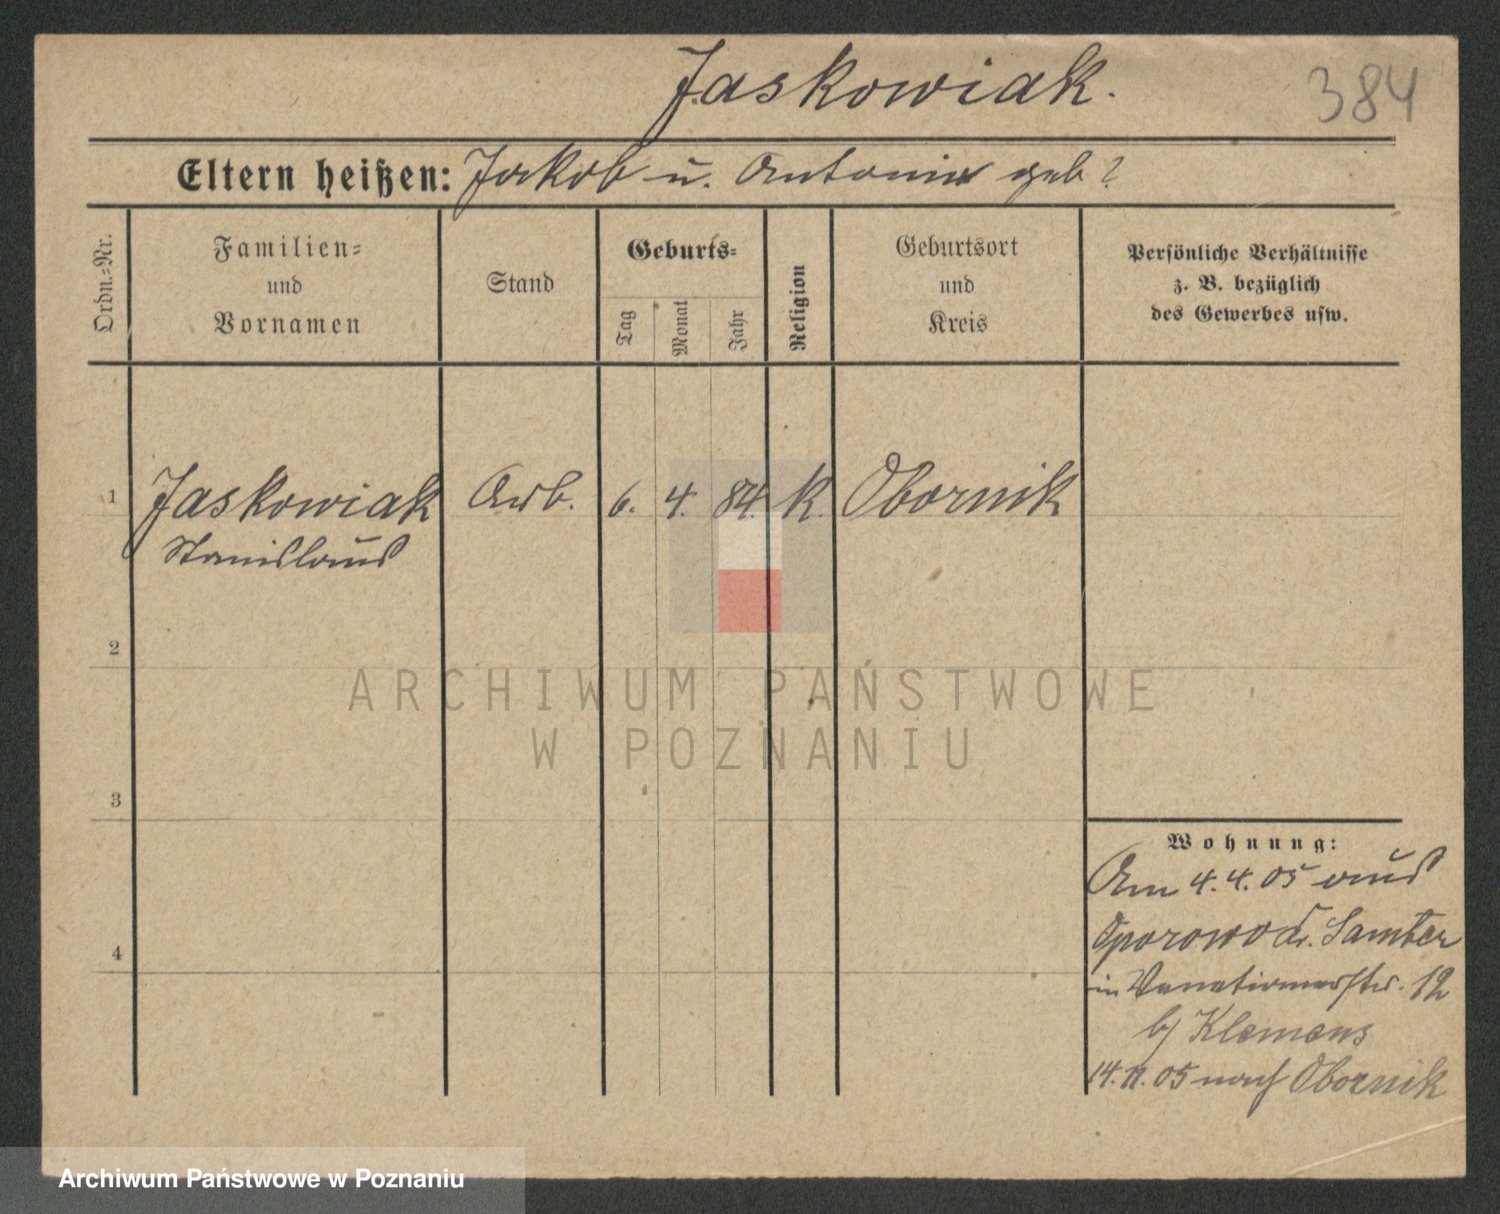 Jaskowiak.
384
Eltern heißen: Jakob u. Antonie geb?
Ordn.=Nr.
Familien=
und
Vornamen
Stand
Geburts=
Tag
Monat
Jahr
Religion
Geburtsort
und
Kreis
Persönliche Verhältnisse
z. B. bezüglich
des Gewerbes usw.
1 Jaskowiak Arb. 6. 4. 84. k. Obornik
Stanislaus
2
ARCHIWUM PAŃSTWOWE
W POZNANIU
3
Wohnung:
Am 4.4.05 aus
Oporowo Kr. Samter
4
in 12
b/ Klemens
14.11.05 nach Obornik
Archiwum Państwowe w Poznaniu